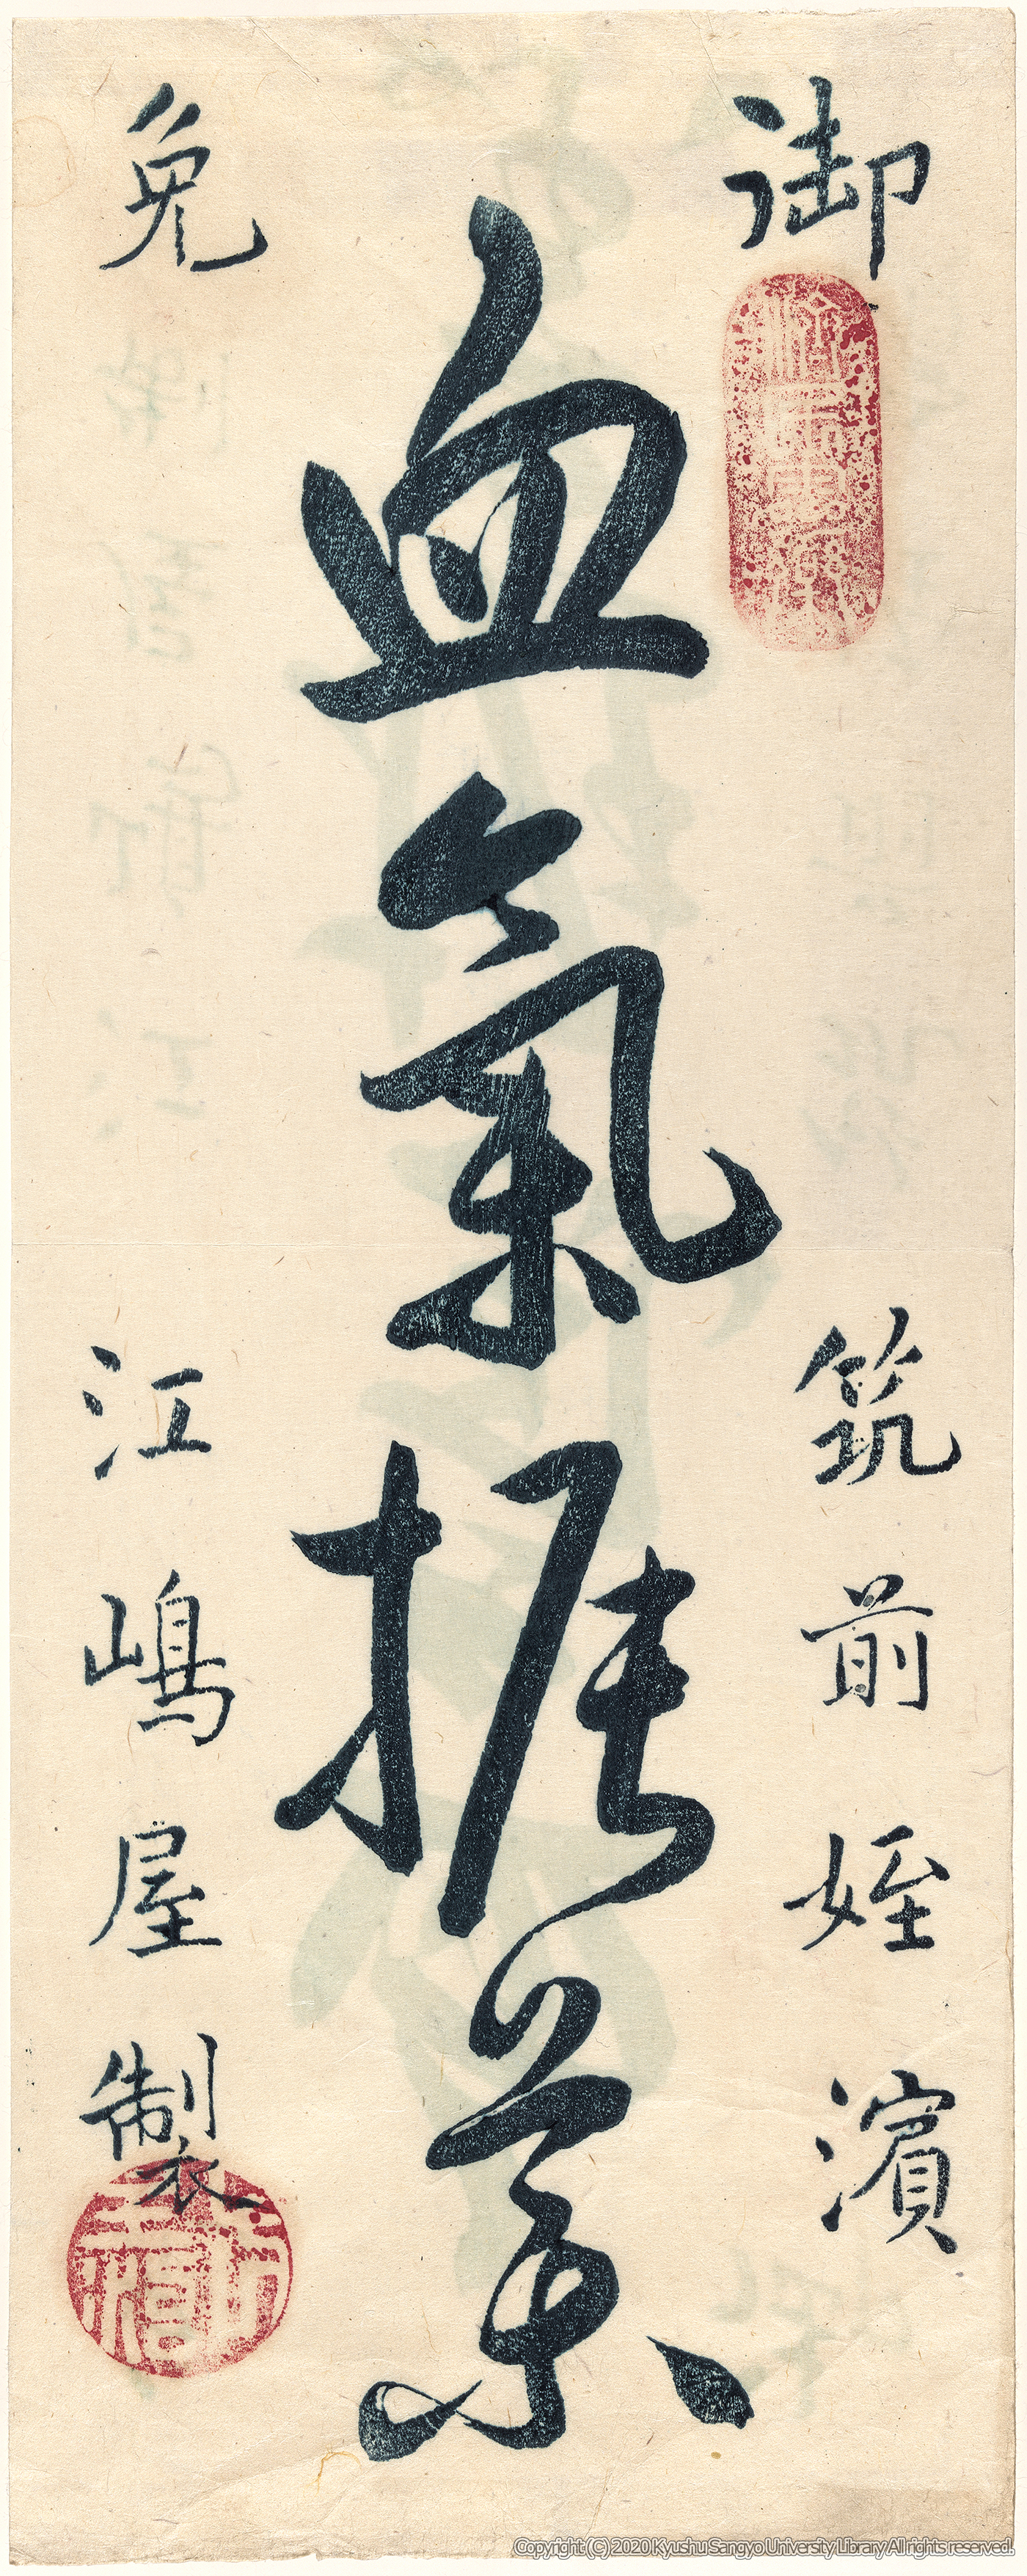 御 筑前姪濱
血氣振薬
免 江嶋屋製
Copyright (C) 2020 Kyushu Sangyo University Library All rights reserved.